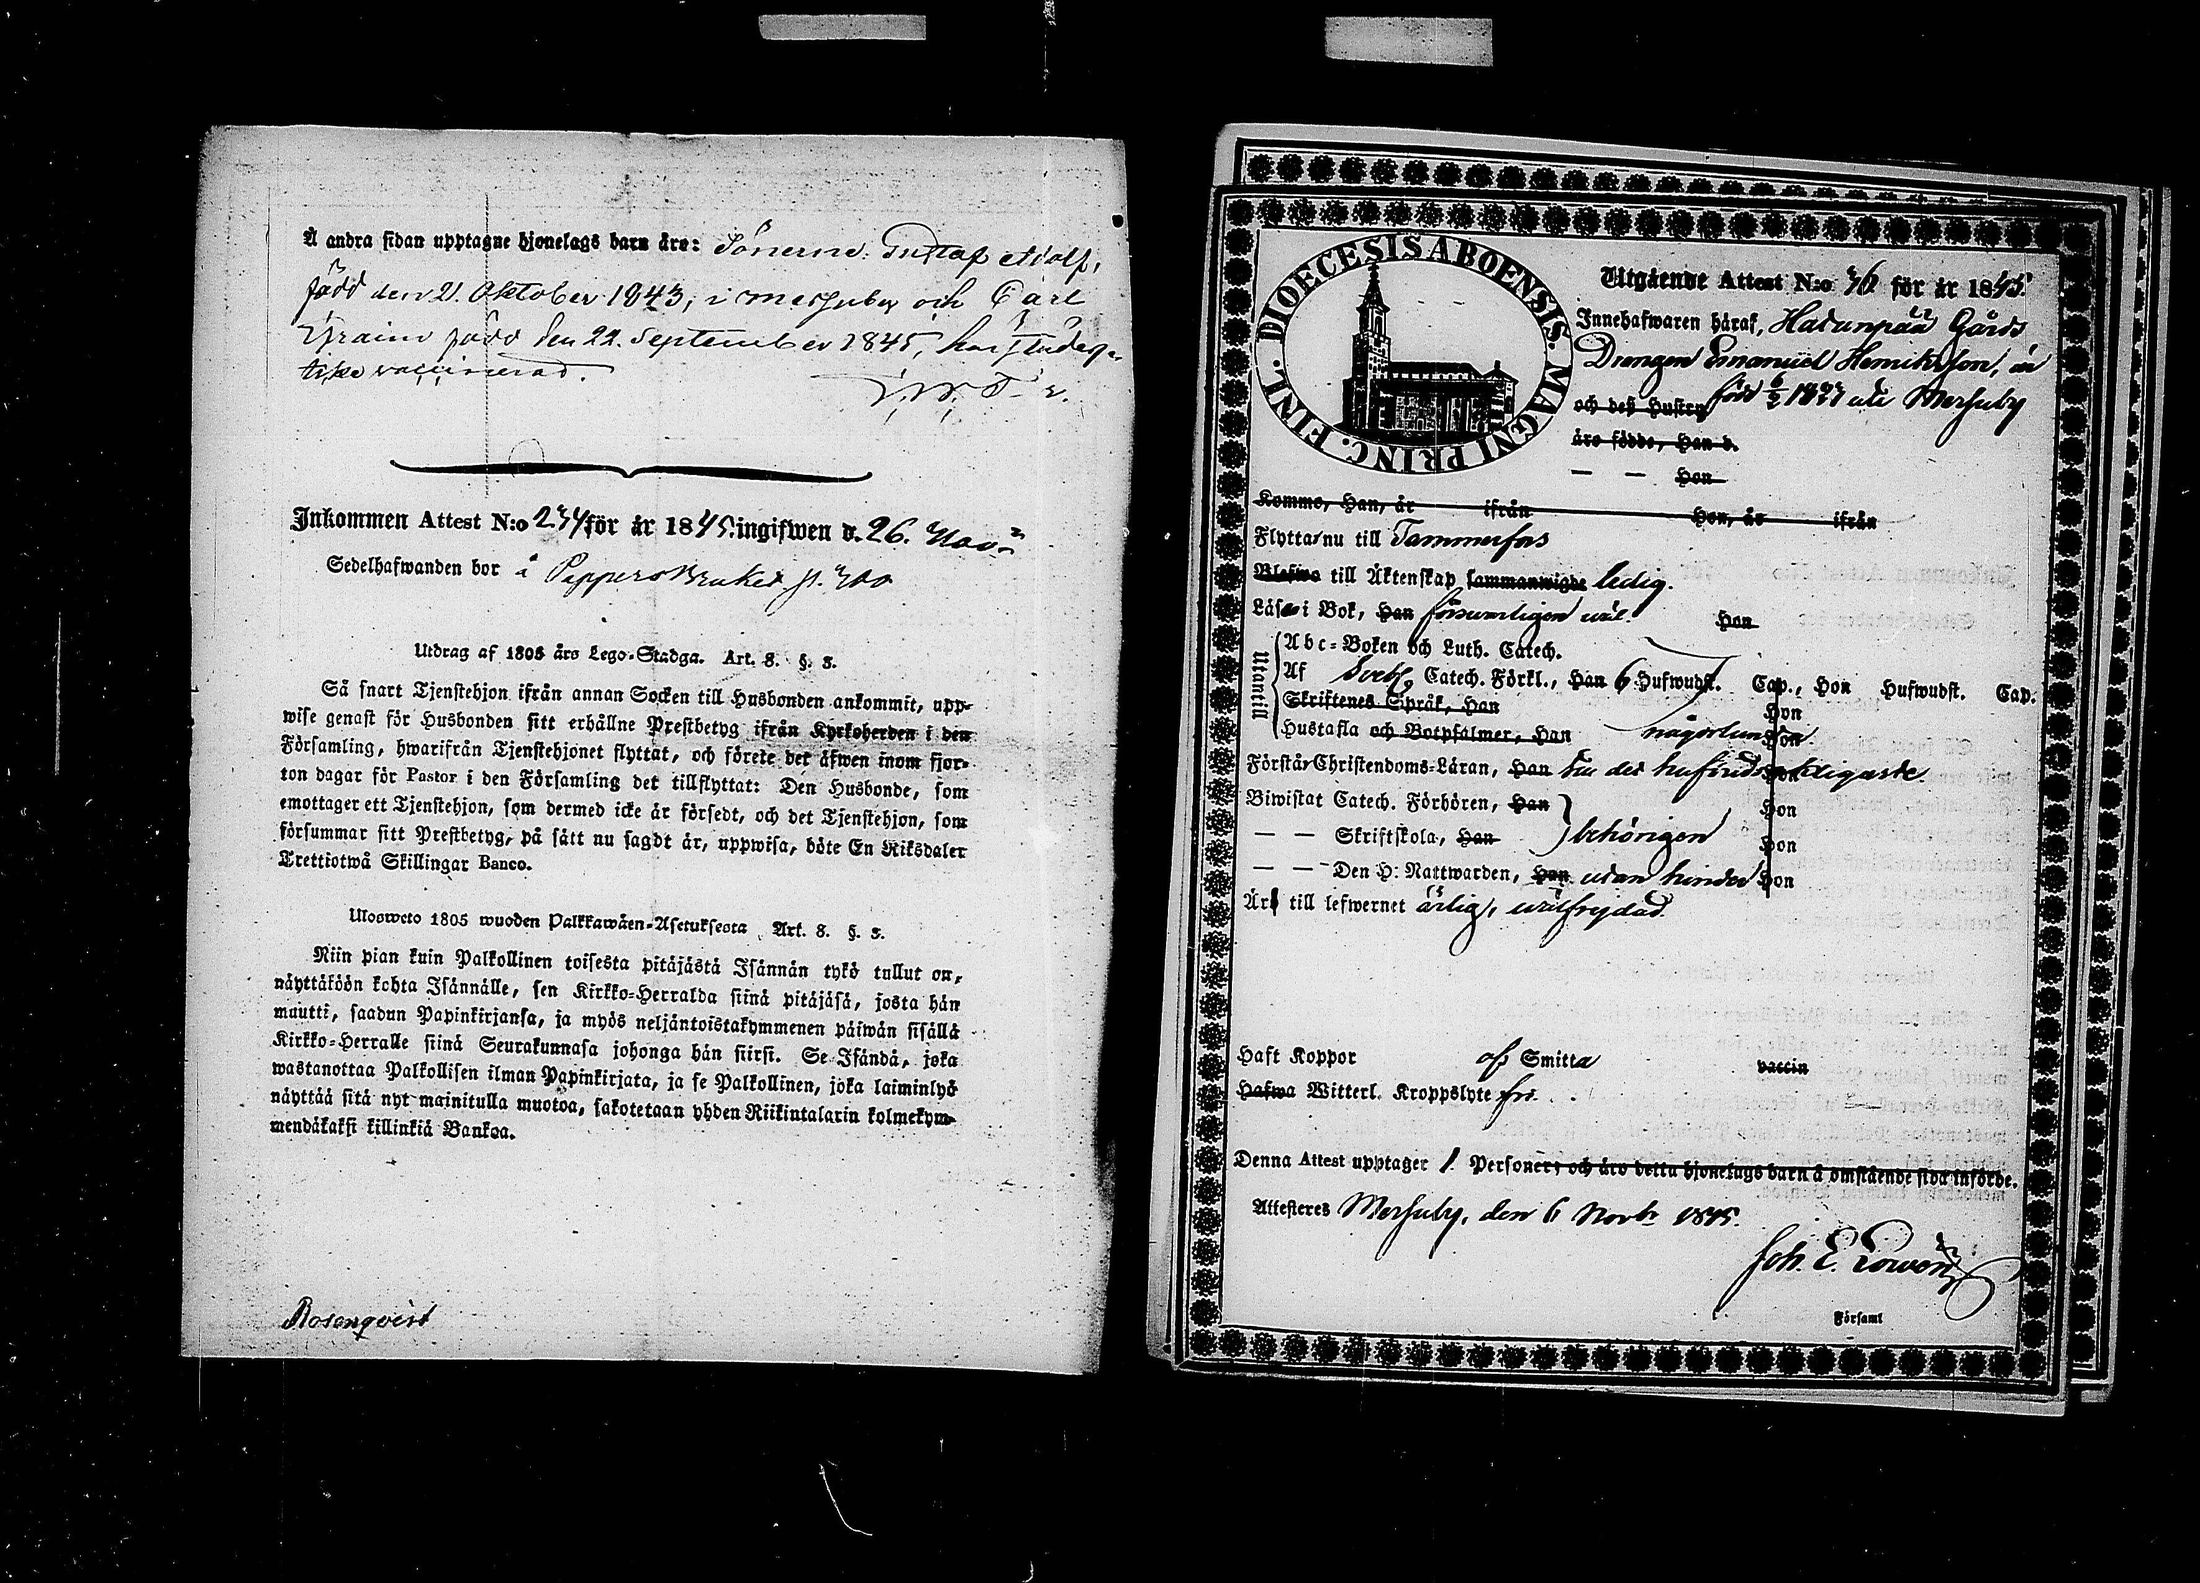 Å andra sidan upptagne hjonelags barn äro: Sönerne: Gustaf Adolf,
född den 21. Oktober 1843, i Messuby och Carl
Efraim född den 22. September 1845, har
vaccinerad.
Inkommen Attest N:o 234 för år 1845. ingifwen d. 26. Nov:
Sedelhafwanden bor å Pappersbruket p.
Utdrag af 1805 års Lego-Stadga. Art. 8. §. 3.
Så snart Tjenstehjon ifrån annan Socken till Husbonden ankommit, upp-
wise genast för Husbonden sitt erhållne Prestbetyg ifrån Kyrkoherden i den
Församling, hwarifrån Tjenstehjonet flyttat, och förete det äfwen inom fjor-
ton dagar för Pastor i den Församling det tillflyttat: Den Husbonde, som
emottager ett Tjenstehjon, som dermed icke är försedt, och det Tjenstehjon, som
försummar sitt Prestbetyg, på sätt nu sagdt är, uppwisa, böte En Riksdaler
Trettiotwå Skillingar Banco.
Ulosweto 1805 wuoden Palkkawäen-Asetuksesta Art. 8. §. 3.
Niin pian kuin Palkollinen toisesta pitäjästä Isännän tykö tullut on,
näyttäköön kohta Isännälle, sen Kirkko-Herralda siinä pitäjäsä, josta hän
muutti, saadun Papinkirjansa, ja myös neljäntoistakymmenen päiwän sisällä
Kirkko-Herralle siinä Seurakunnasa johonga hän siirsi. Se Isändä, joka
wastanottaa Palkollisen ilman Papinkirjata, ja se Palkollinen, joka laiminlyö
näyttää sitä nyt mainitulla muotoa, sakotetaan yhden Riikintalarin kolmekym-
mendäkaksi killinkiä Bankoa.
Rosenqvist
DIOECESIS ABOENSIS MAGNI PRINC. FINL.
Utgående Attest N:o 36 för år 1845.
Innehafwaren häraf, Hatanpää Gårds
Drengen Emanuel Henriksson, är
och deß Hustru född 6/2 1827 uti Messuby
äro födde, Han d.
— — Hon
Komme, Han, år ifrån Hon, år ifrån
Flyttar nu till Tammerfors
Blefwo till Äktenskap sammanwigde ledig.
Läser i Bok, Han försvarligen wäl. Hon
Utantill
Abc-Boken och Luth. Catech.
Af Sveb. Catech. Förkl., Han 6 Hufwudst. Cap., Hon Hufwudst. Cap.
Skriftenes Språk, Han Hon
Hustafla och Botpsalmer, Han någorlunda Hon
Förstår Christendoms-Läran, Han till det hufvudsakligaste Hon
Biwistat Catech. Förhören, Han Hon
— — Skriftskola, Han behörigen Hon
— — Den H: Nattwarden, Han utan hinder Hon
Är till lefwernet ärlig, wälfrejdad.
Haft Koppor af Smitta vaccin
Hafwa Witterl. Kroppslyte fri.
Denna Attest upptager 1. Personer, och äro detta hjonelags barn å omstående sida införde.
Attesteres Messuby, den 6 Novbr 1845.
Joh. E.
Församl